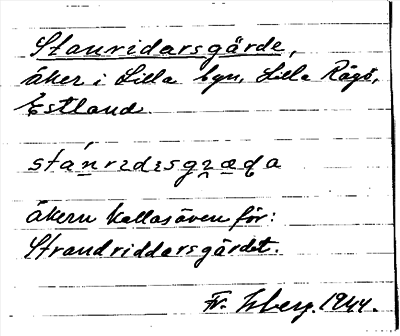 Stanridarsgärde,
åker i Lilla byn, Lilla Rågö,
Estland.
stánrɪdɪsgɪ̯æɖa
åkern kallas även för:
Strandriddarsgärdet.
Fr. Isberg. 1944.